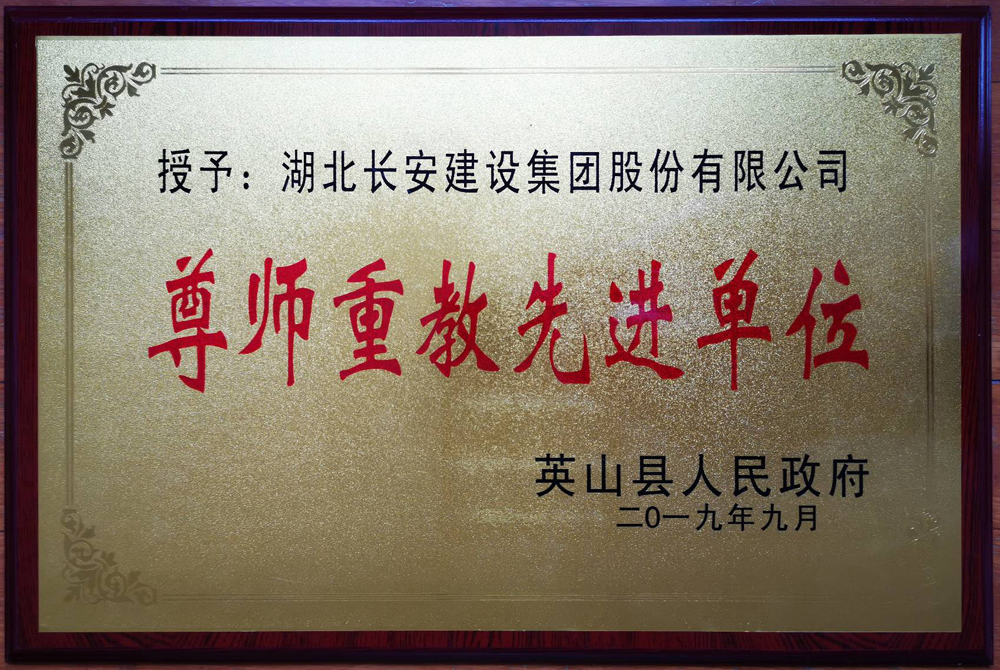 授予：湖北长安建设集团股份有限公司
尊师重教先进单位
英山县人民政府
二0一九年九月